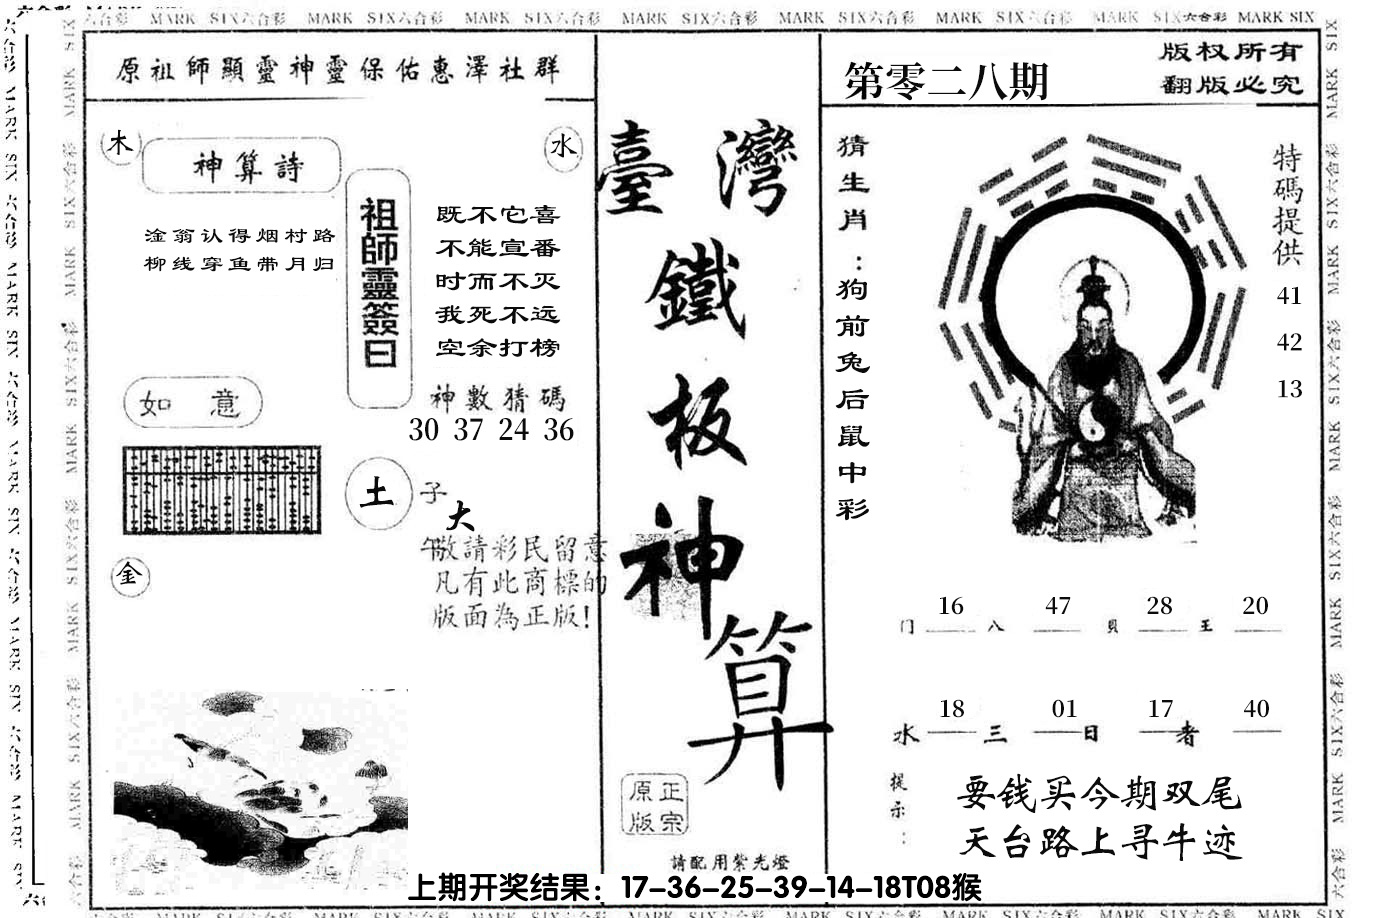 六合彩 MARK SIX六合彩 MARK SIX六合彩 MARK SIX六合彩 MARK SIX六合彩 MARK SIX六合彩 MARK SIX六合彩 MARK SIX六合彩 MARK SIX
原祖師顯靈神靈保佑惠澤社群
木
水
神算詩
淦翁认得烟村路
柳线穿鱼带月归
祖師靈簽曰
既不它喜
不能宣番
时而不灭
我死不远
空余打榜
神數猜碼
30 37 24 36
如意
土
子
大
午
敬請彩民留意
凡有此商標的
版面為正版!
金
臺灣
鐵
板
神
算
正宗
原版
請配用紫光燈
第零二八期
版权所有
翻版必究
猜生肖:狗前兔后鼠中彩
特碼提供
41
42
13
门 16 八 47 貝 28 王 20
水 18 三 01 日 17 者 40
提示:
要钱买今期双尾
天台路上寻牛迹
上期开奖结果：17-36-25-39-14-18T08猴